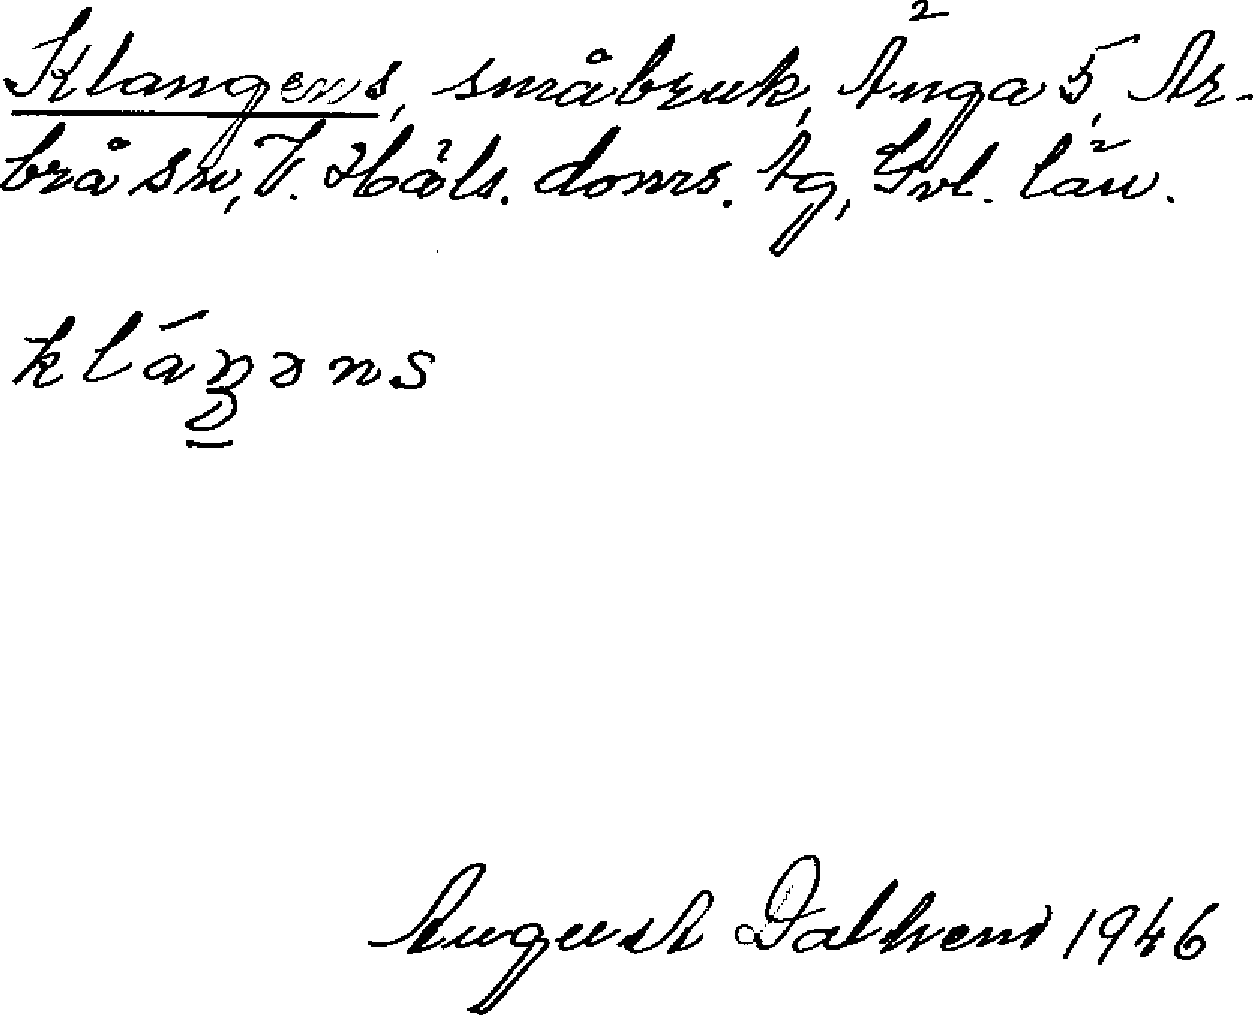 Klangens, småbruk, Änga 5, Ar-
brå sn, V. Häls. doms. tg, Gvl. län.
kláŋəns
August Dalhem 1946